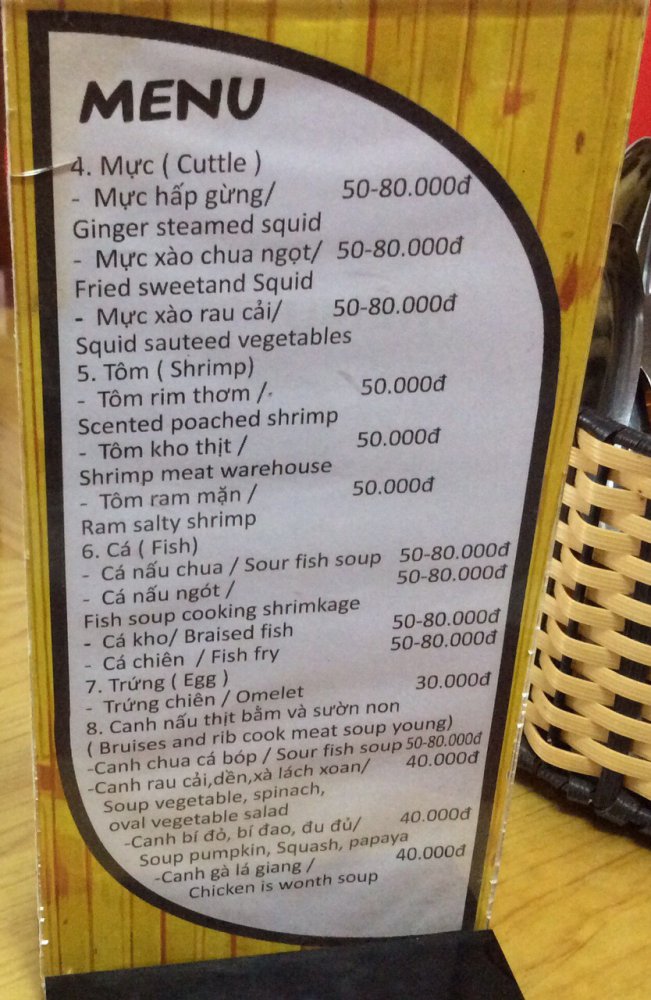 MENU
4. Mực ( Cuttle )
- Mực hấp gừng/ 50-80.000đ
Ginger steamed squid
- Mực xào chua ngọt/ 50-80.000đ
Fried sweetand Squid
- Mực xào rau cải/ 50-80.000đ
Squid sauteed vegetables
5. Tôm ( Shrimp)
- Tôm rim thơm / 50.000đ
Scented poached shrimp
- Tôm kho thịt / 50.000đ
Shrimp meat warehouse
- Tôm ram mặn / 50.000đ
Ram salty shrimp
6. Cá ( Fish)
- Cá nấu chua / Sour fish soup 50-80.000đ
- Cá nấu ngót / 50-80.000đ
Fish soup cooking shrimkage
- Cá kho/ Braised fish 50-80.000đ
- Cá chiên / Fish fry 50-80.000đ
7. Trứng ( Egg )
- Trứng chiên / Omelet 30.000đ
8. Canh nấu thịt bằm và sườn non
( Bruises and rib cook meat soup young)
-Canh chua cá bóp / Sour fish soup 50-80.000đ
-Canh rau cải,dền,xà lách xoan/ 40.000đ
Soup vegetable, spinach,
oval vegetable salad
-Canh bí đỏ, bí đao, đu đủ/ 40.000đ
Soup pumpkin, Squash, papaya
-Canh gà lá giang / 40.000đ
Chicken is wonth soup